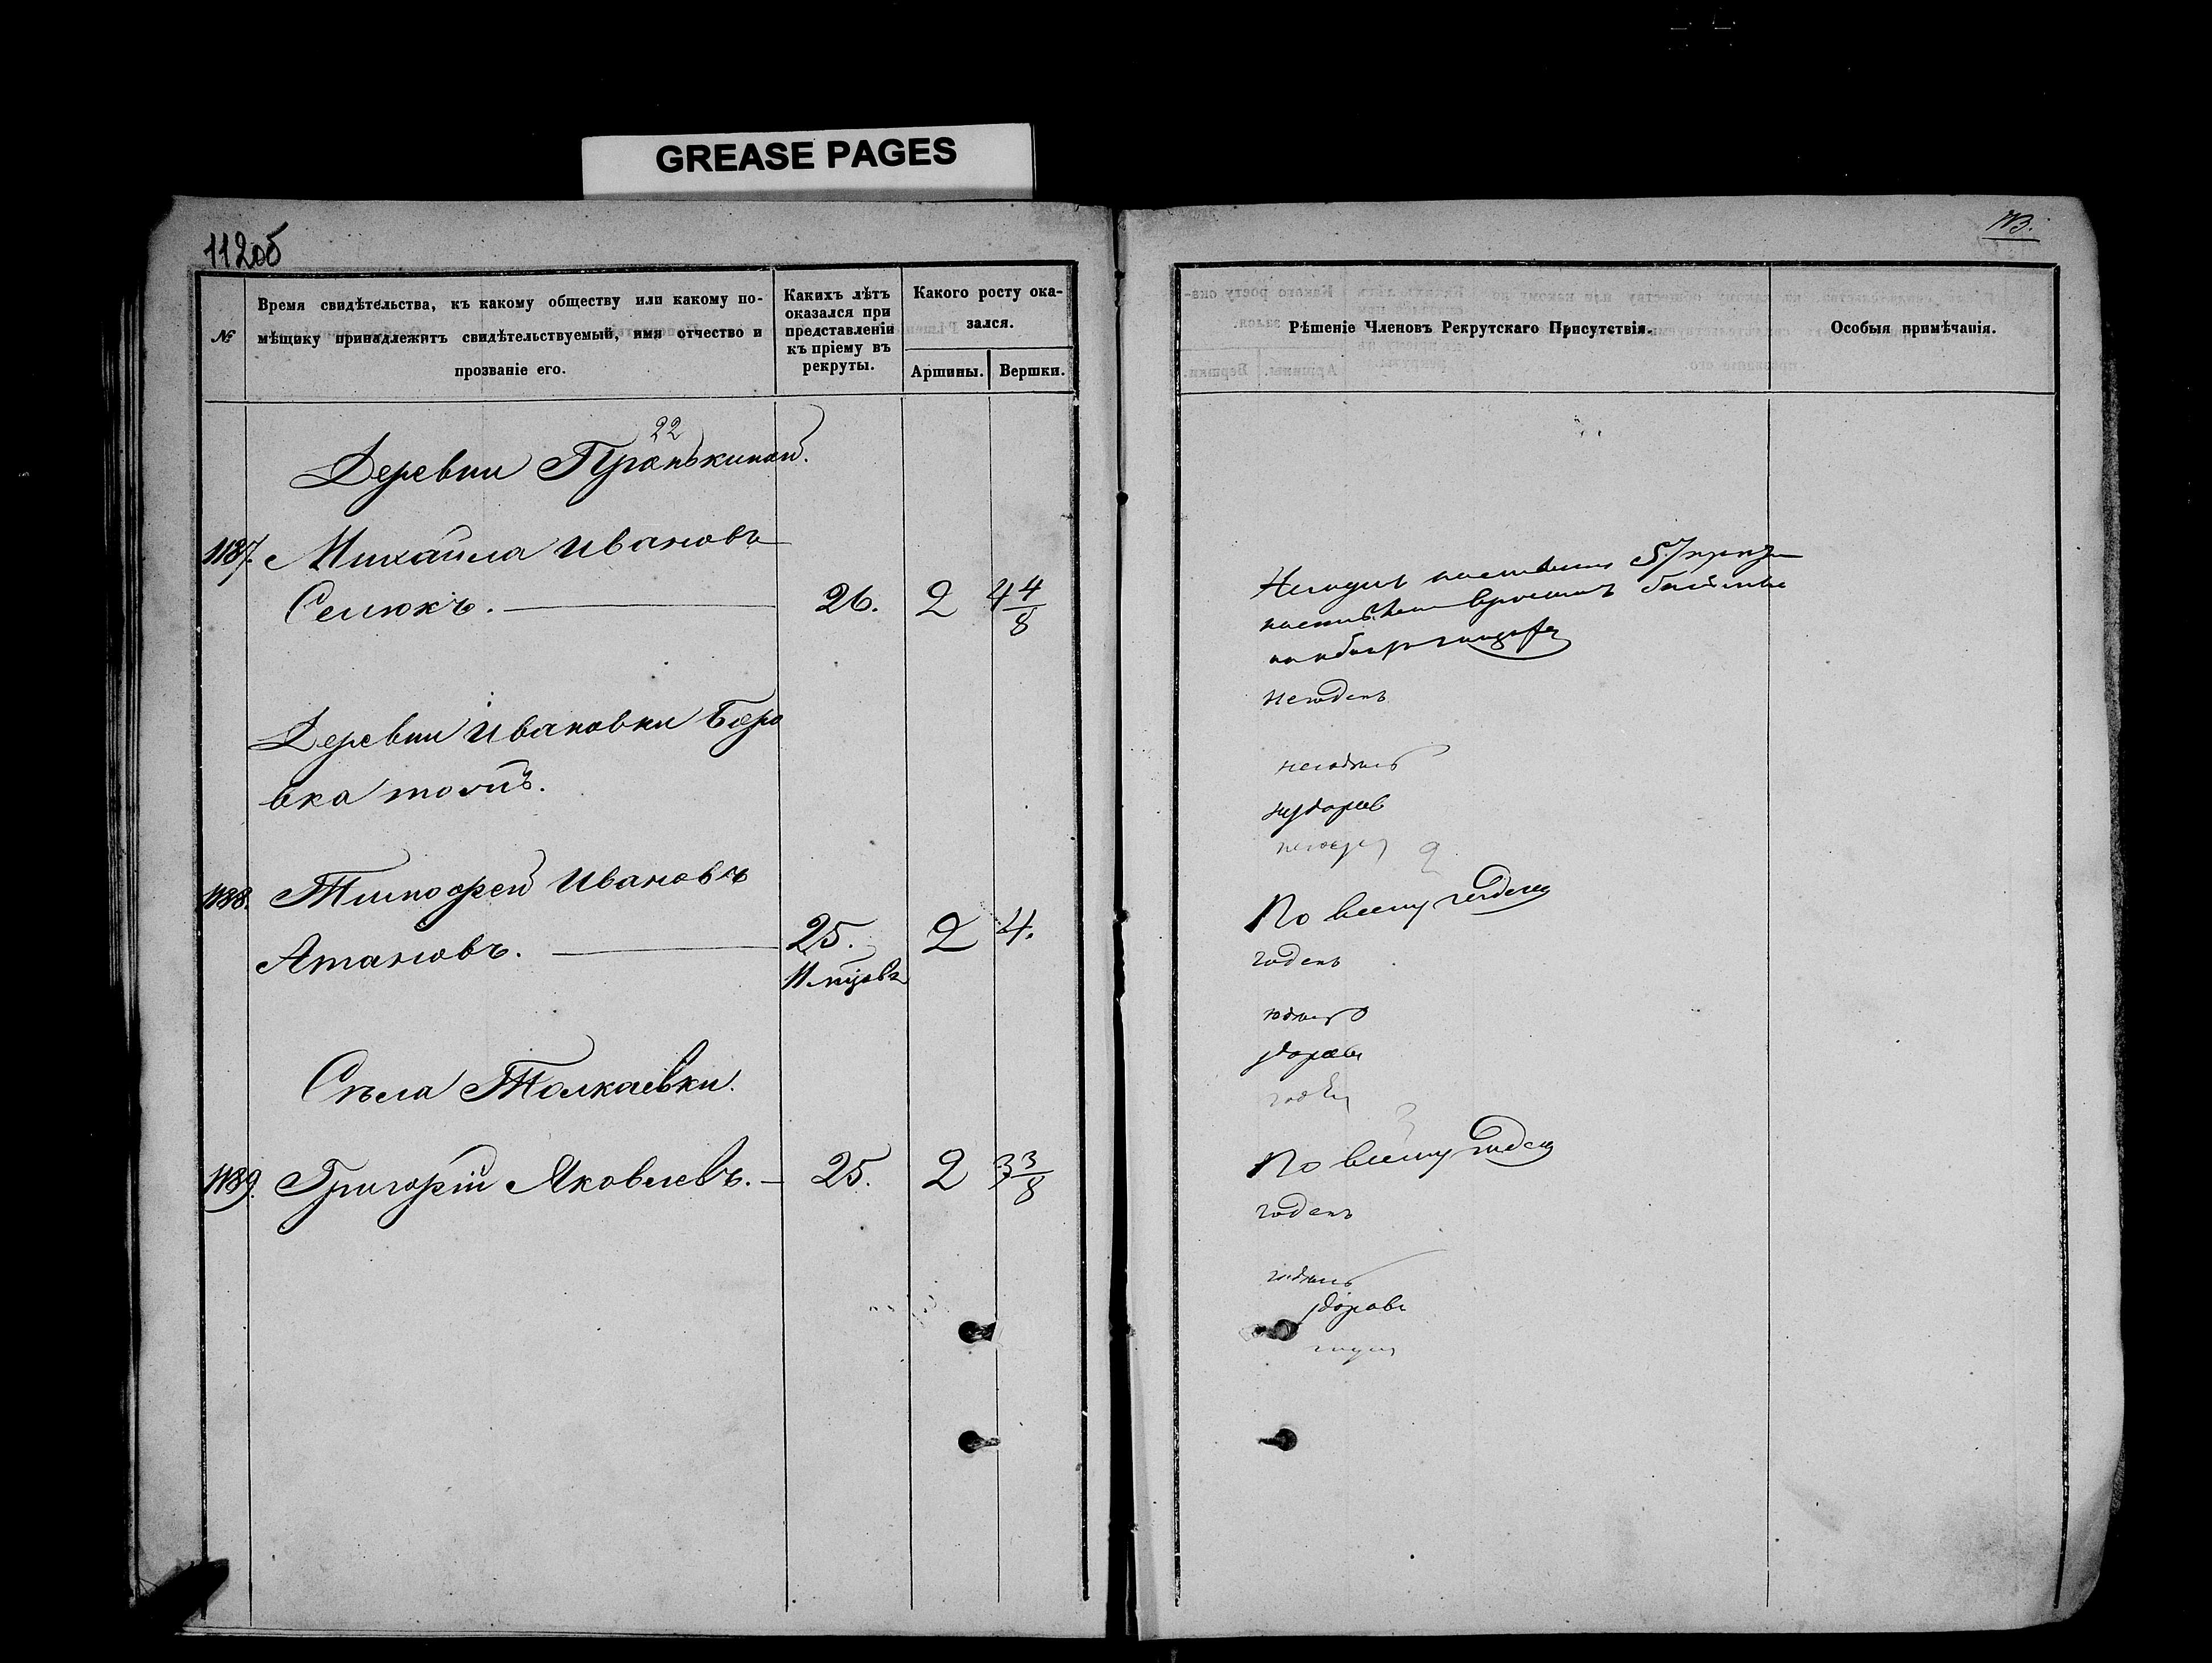 GREASE PAGES
112об
113.
№
Время свидѣтельства, къ какому обществу или какому по-
мѣщику принадлежитъ свидѣтельствуемый, имя отчество и
прозваніе его.
Какихъ лѣтъ
оказался при
представленіи
къ пріему въ
рекруты.
Какого росту ока-
зался.
Аршины.
Вершки.
22
Деревни Пронькиной.
1187. Михайла Ивановъ
Селюкъ. 26. 2 4 4/8
Деревни Ивановки Боро
вка тожъ.
1188. Тимофей Ивановъ
Атановъ. 25. 2 4.
Села Толкаевки.
1189. Григорій Яковлевъ. 25. 2 3 3/8
Рѣшеніе Членовъ Рекрутскаго Присутствія.
Особыя примѣчанія.
негоденъ
негоденъ
нездоровъ
По всему годенъ
годенъ
годенъ
здоровъ
годенъ
По всему годенъ
годенъ
годенъ
здоровъ